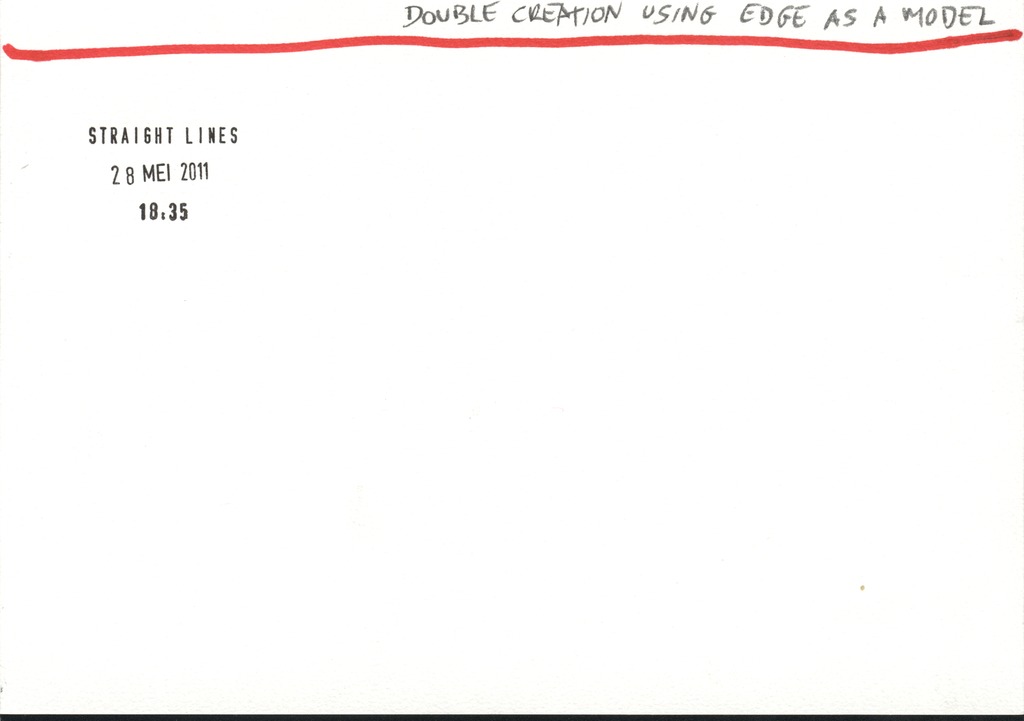 DOUBLE CREATION USING EDGE AS A MODEL
STRAIGHT LINES
28 MEI 2011
18:35